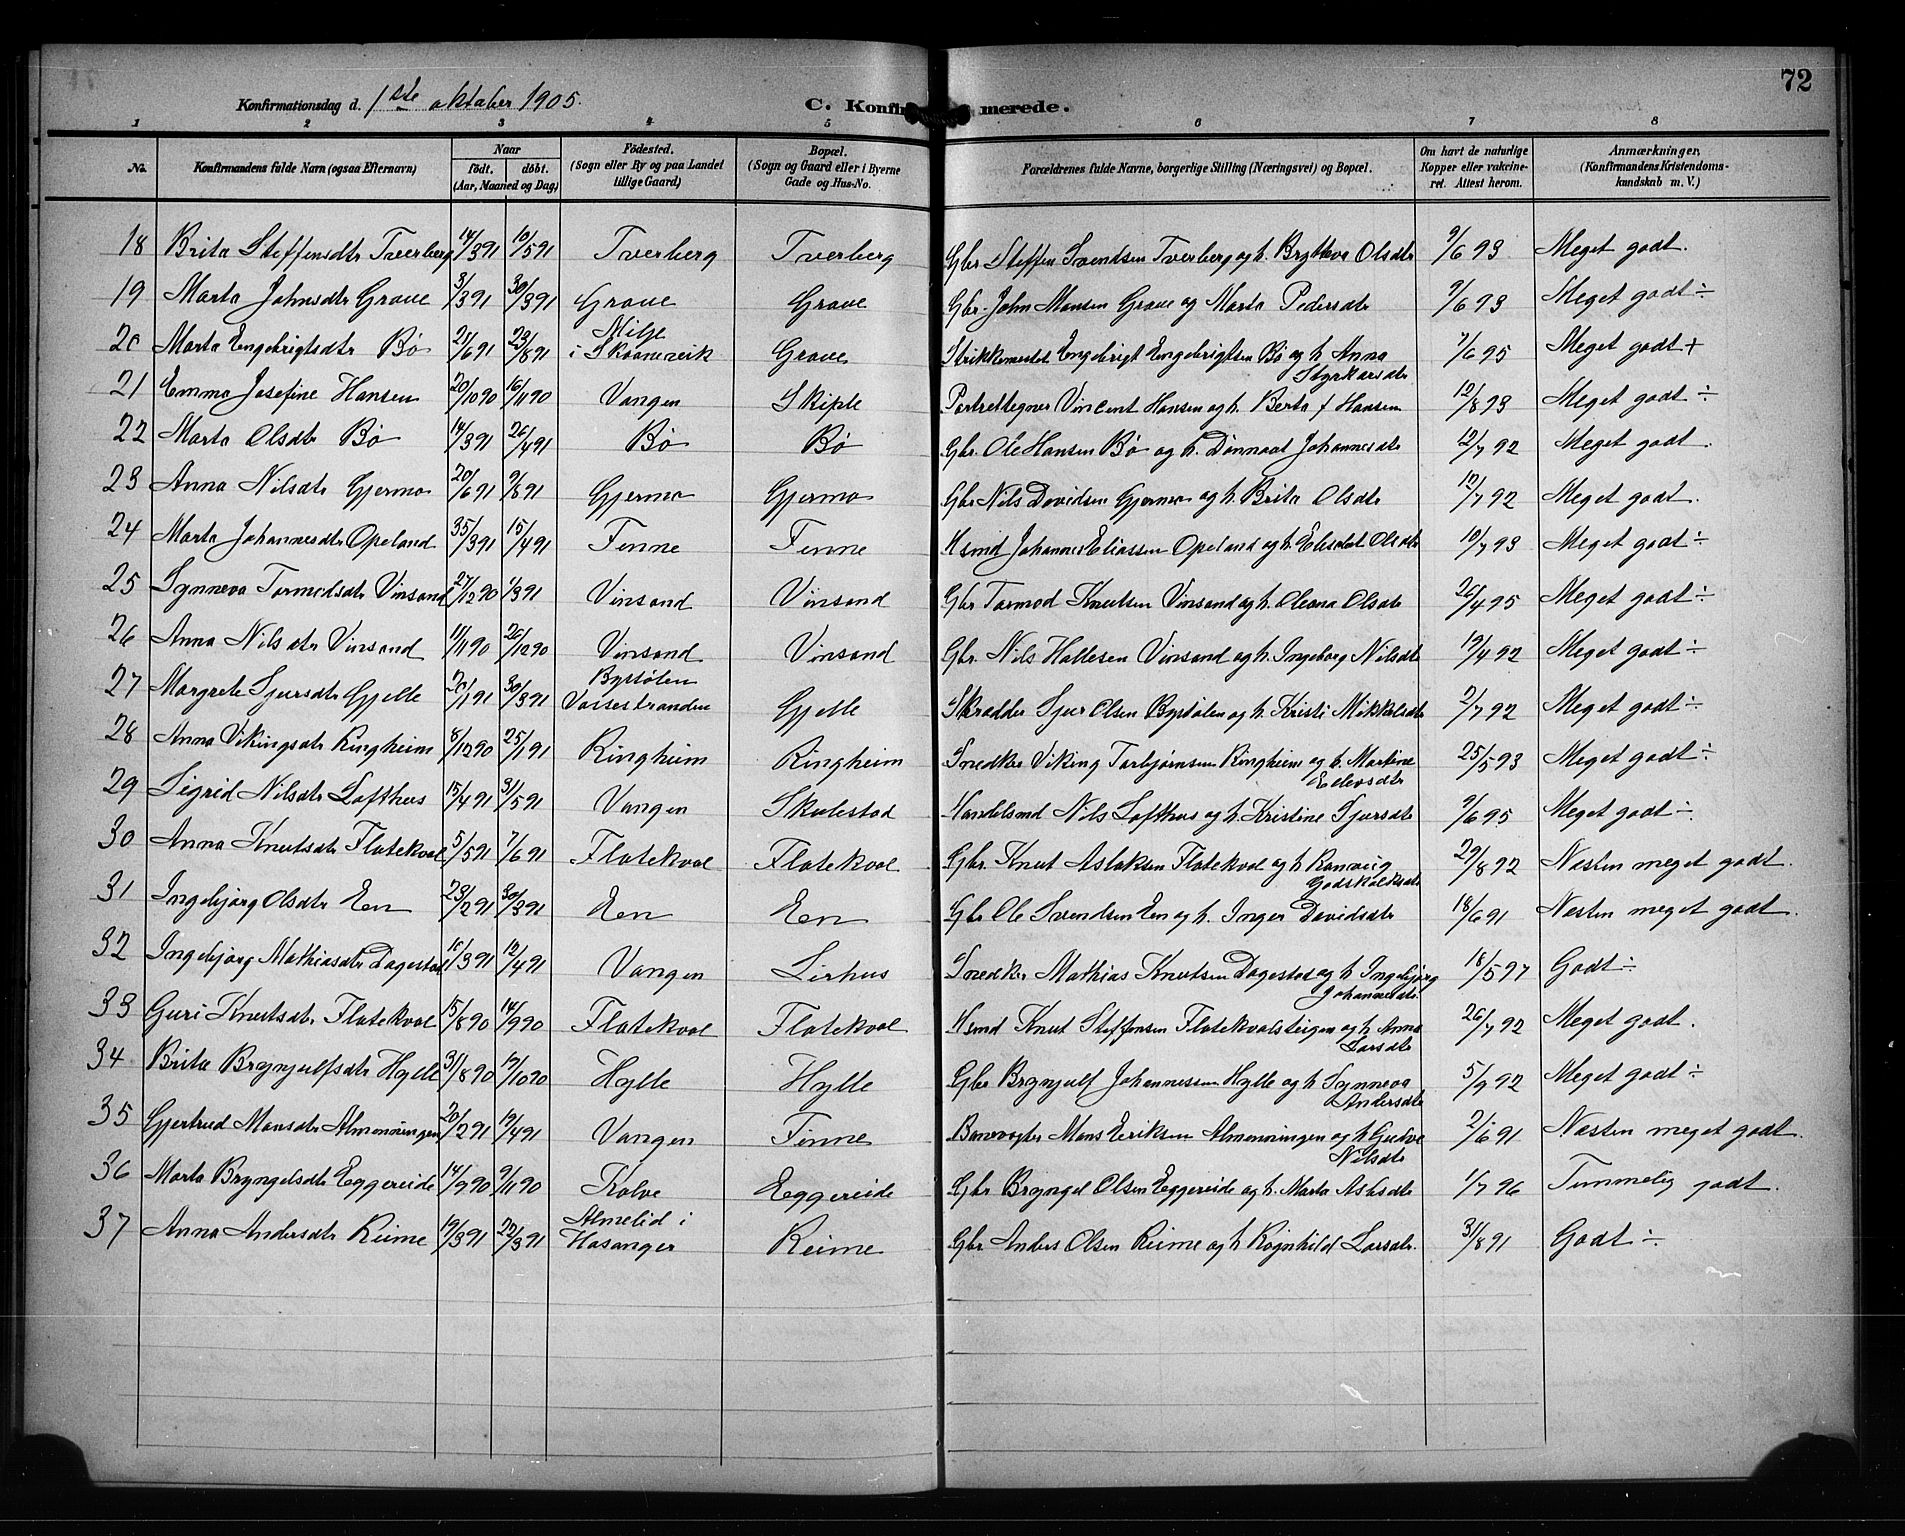 72
Konfirmationsdag d. 1ste oktober 1905.
C. Konfir merede.
1 2 3 4 5 6 7 8
No. Konfirmandens fulde Navn (ogsaa Efternavn) Naar født. døbt. (Aar, Maaned og Dag) Fødested. (Sogn eller By og paa Landet tillige Gaard) Bopæl. (Sogn og Gaard eller i Byerne Gade og Hus-No. Forældrenes fulde Navne, borgerlige Stilling (Næringsvei) og Bopæl. Om havt de naturlige Kopper eller vakcineret. Attest herom. Anmærkninger, (Konfirmandens Kristendomskundskab m. V.)
18 Brita Steffensdtr Tverberg 14/391 10/591 Tverberg Tverberg Gbr Steffen Svendsen Tverberg og h. Bryteva Olsdtr 9/6 93 Meget godt.
19 Marta Johnsdtr Grove 3/391 30/391 Grove Grove Gbr. John Monsen Grove og Marta Pedersdtr 9/6 93 Meget godt ÷
20 Marta Engebrigtsdtr Bø 21/691 23/891 Milje i Skaanevik Grove Strikkemester Engebrigt Engebrigtsen Bø og h Anna Styrkarsdtr 7/6 95 Meget godt +
21 Emma Josefine Hansen 20/1090 16/1190 Vangen Skiple Portrettegner Vincent Hansen og h. Berta f Hansen 12/8 93 Meget godt ÷
22 Marta Olsdtr Bø 14/391 26/491 Bø Bø Gbr. Ole Hansen Bø og h. Dønnaat Johannesdtr 12/7 92 Meget godt.
23 Anna Nilsdtr Gjermo 20/691 9/891 Gjermo Gjermo Gbr Nils Davidsen Gjermo og h. Brita Olsdtr 12/7 92 Meget godt.
24 Marta Johannesdtr Opeland 35/391 15/491 Finne Finne Hsmd Johannes Eliassen Opeland og h. Elisabet Olsdtr 10/7 93 Meget godt ÷
25 Synneva Tormodsdtr Vinsand 27/1290 1/391 Vinsand Vinsand Gbr Tormod Knutsen Vinsand og h. Oleana Olsdtr 26/4 95 Meget godt ÷
26 Anna Nilsdtr Vinsand 11/1190 26/1290 Vinsand Vinsand Gbr. Nils Hallesen Vinsand og h. Ingeborg Nilsdtr 19/4 92 Meget godt ÷
27 Margrete Sjursdtr Gjelle 20/191 30/391 Bystølen Vossestranden Gjelle Skrædder Sjur Olsen Bystølen og h. Kristi Mikkelsdtr 2/7 92 Meget godt ÷
28 Anna Vikingsdtr Ringheim 8/1290 25/191 Ringheim Ringheim Snedker Viking Torbjørnsen Ringheim og h. Martine Edevsdtr 25/5 93 Meget godt ÷
29 Sigrid Nilsdtr Lofthus 15/491 31/591 Vangen Skulestad Handelsmd Nils Lofthus og h. Kristine Sjursdtr 9/6 95 Meget godt ÷
30 Anna Knutsdtr Flatekval 5/591 7/691 Flatekval Flatekval Gbr. Knut Aslaksen Flatekval og h Ranveig Godskalksdtr 29/8 92 Næsten meget godt.
31 Ingebjørg Olsdtr Een 23/291 30/391 Een Een Gbr Ole Svendsen Een og h. Inger Davidsdtr 18/6 91 Næsten meget godt.
32 Ingebjørg Mathiasdtr Dagestad 10/391 12/491 Vangen Lirhus Snedker Mathias Knutsen Dagestad og h Ingebjørg Johannesdtr. 18/5 97 Godt ÷
33 Guri Knutsdtr Flatekval 15/890 14/990 Flatekval Flatekval Hsmd Knut Steffensen Flatekvalsteigen og h Anna Larsdtr 26/7 92 Meget godt.
34 Brita Brynjulfsdtr Hylle 31/890 19/1090 Hylle Hylle Gbr Brynjulf Johannessen Hylle og h Synneva Andersdtr 5/9 92 Meget godt ÷
35 Gjertrud Monsdtr Almenningen 20/291 19/491 Vangen Finne Banevogter Mons Eriksen Almenningen og h Gudve Nilsdtr 2/6 91 Næsten meget godt.
36 Marta Bryngelsdtr Eggereide 14/990 9/1190 Kolve Eggereide Gbr Bryngel Olsen Eggereide og h. Marta Asksdtr 1/7 96 Temmelig godt.
37 Anna Andersdtr Reime 19/391 22/391 Almelid i Hosanger Reime Gbr Anders Olsen Reime og h Ragnhild Larsdtr. 31/8 91 Godt ÷